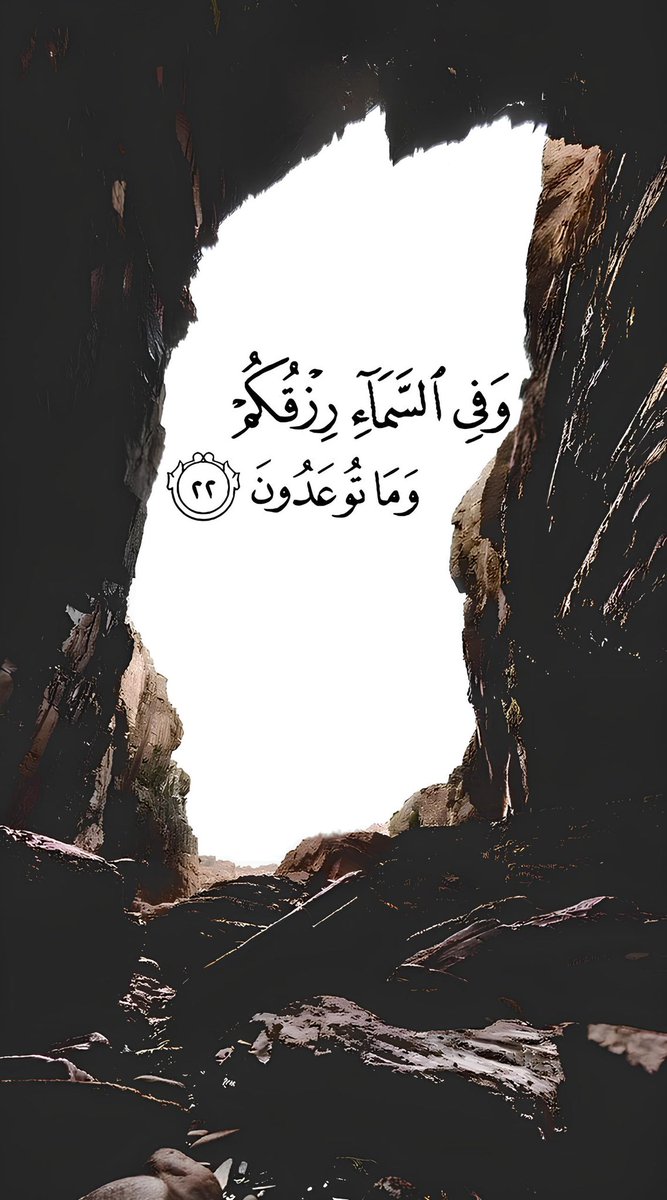 وَفِى ٱلسَّمَآءِ رِزۡقُكُمۡ
وَمَا تُوعَدُونَ ٢٢